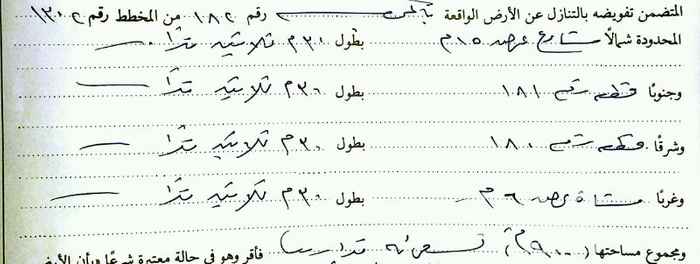 المتضمن تفويضه بالتنازل عن الأرض الواقعة رقم ١٨٢ من المخطط رقم ١٣٠٢
المحدودة شمالاً شارع عرضه ١٥م بطول ٣٠م ثلاثين متراً
وجنوبًا قطعه رقم ١٨١ بطول ٣٠م ثلاثين متراً
وشرقًا قطعه رقم ١٨٠ بطول ٣٠م ثلاثين متراً
وغربًا مشاة عرضه ٦م بطول ٣٠م ثلاثين متراً
ومجموع مساحتها (٩٠٠م) تسعمائه متراً فأقر وهو في حالة معتبرة شرعًا وبأن الأرض